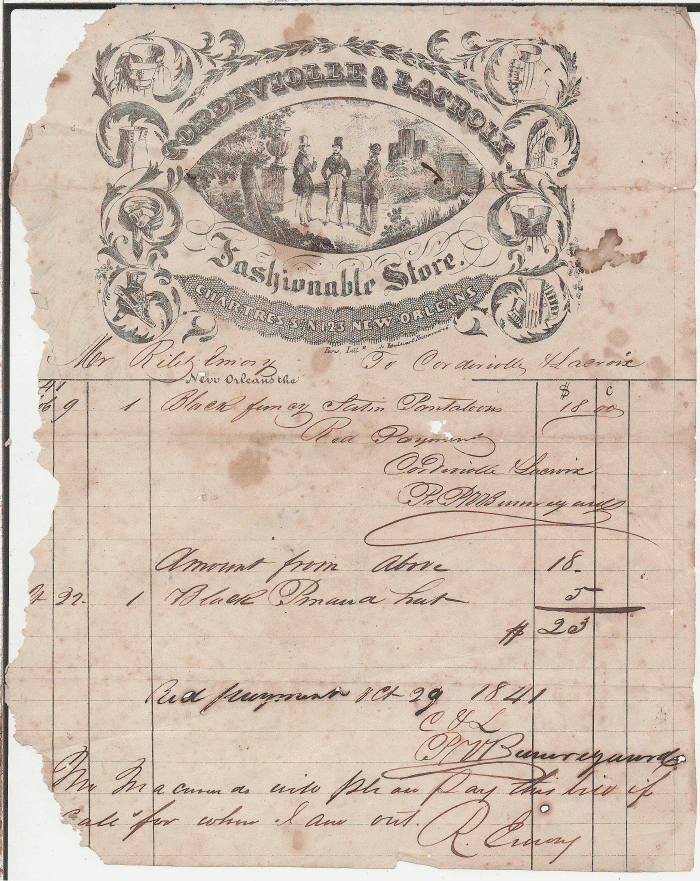 CORDEVIOLLE & LACROIX
Fashionable Store.
CHARTRES S. N 123 NEW ORLEANS
Mr To Cordeviolle & Lacroix
New Orleans the
$ C
41
9 1 Black fancy Satin Pantaloons 18 00
Recd Payment
Cordeviolle & Lacroix
Pr
Amount from above 18 -
22. 1 Black hat 5
$ 23
Recd payment Oct 29 1841
C & L
Mr will please pay this bill if
call for when I am out.
R. Emory